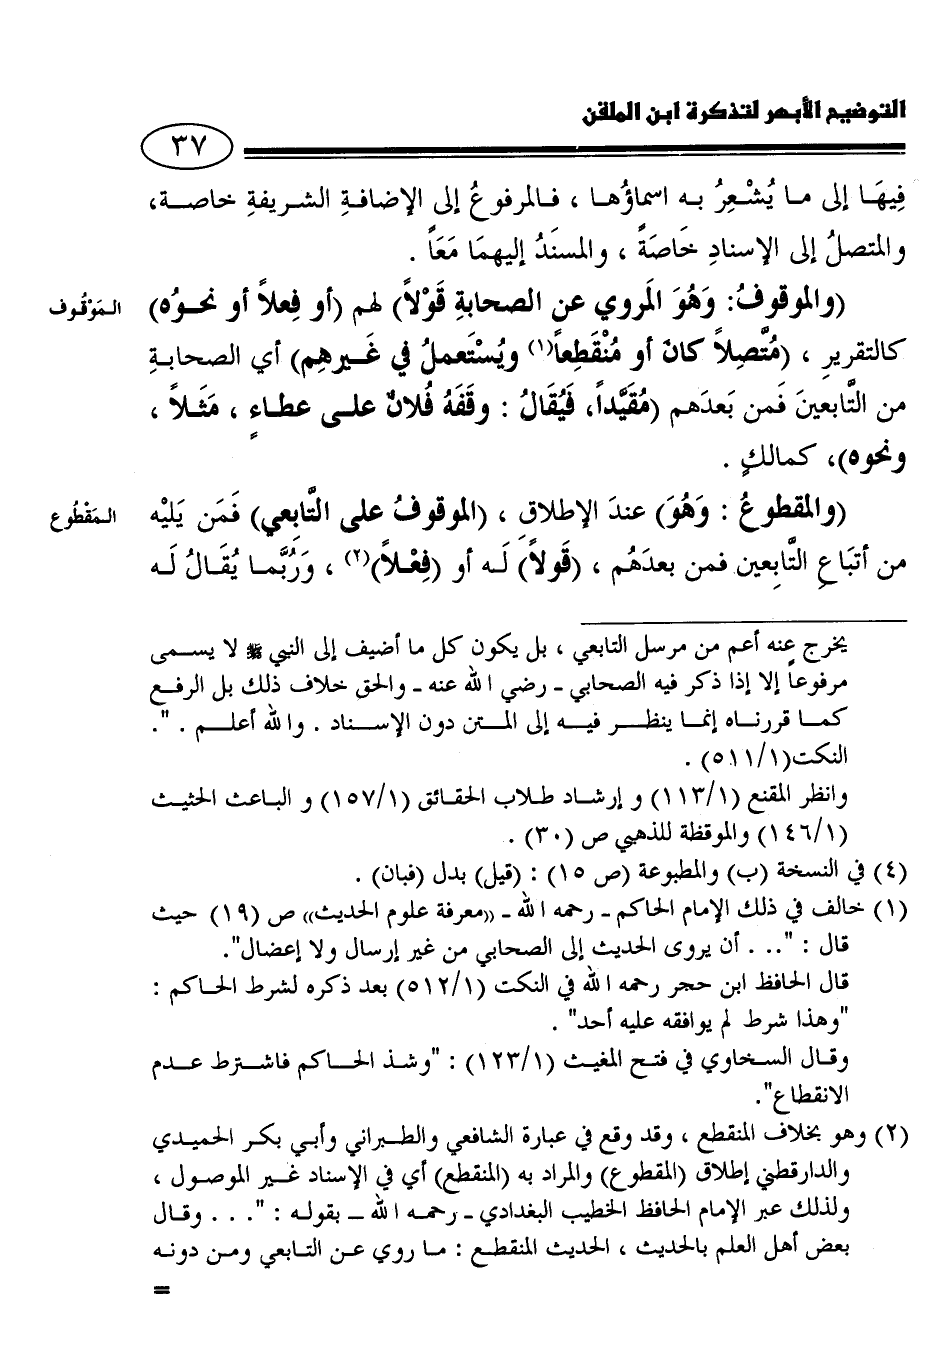 التوضيح الأبهر لتذكرة ابن الملقن
٣٧
فِيهَا إلى ما يُشْعِرُ به اسماؤُها ، فالمرفوعُ إلى الإضافةِ الشريفةِ خاصة،
والمتصلُ إلى الإسنادِ خَاصَةً ، والمسنَدُ إليهمَا مَعَاً .
(والموقوفُ: وَهُوَ المَروي عن الصحابةِ قَوْلاً) لهم (أو فِعلاً أو نحوُه)
المَوْقُوف
كالتقريرِ ، (مُتَّصِلاً كانَ أو مُنْقَطِعاً(١) ويُسْتَعملُ في غَيرِهِم) أي الصحابةِ
من التَّابعينَ فَمن بَعدَهم (مُقَيَّداً، فَيُقَالُ : وقَفَهُ فُلانٌ على عطاءٍ ، مَثَلاً ،
ونحوه)، كمالكٍ .
(والمقطوعُ : وَهُوَ) عندَ الإطلاقِ ، (الموقوفُ على التَّابعي) فَمَن يَلِيْه
المَقْطُوع
من أتبَاعِ التَّابعين فمن بعدَهُم ، (قَولاً) لَه أو (فِعْلاً)(٢) ، وَرُبَّما يُقَالُ لَه
يخرج عنه أعم من مرسل التابعي ، بل يكون كل ما أضيف إلى النبي ﷺ لا يسمى
مرفوعاً إلا إذا ذكر فيه الصحابي ـ رضي الله عنه ـ والحق خلاف ذلك بل الرفع
كما قررناه إنما ينظر فيه إلى المتن دون الإسناد . والله أعلم . ".
النكت(٥١١/١) .
وانظر المقنع (١١٣/١) و إرشاد طلاب الحقائق (١٥٧/١) و الباعث الحثيث
(١٤٦/١) والموقظة للذهبي ص (٣٠) .
(٤) في النسخة (ب) والمطبوعة (ص ١٥) : (قيل) بدل (فبان) .
(١) خالف في ذلك الإمام الحاكم ـ رحمه الله ـ «معرفة علوم الحديث» ص (١٩) حيث
قال : ". . . أن يروى الحديث إلى الصحابي من غير إرسال ولا إعضال".
قال الحافظ ابن حجر رحمه الله في النكت (٥١٢/١) بعد ذكره لشرط الحاكم :
"وهذا شرط لم يوافقه عليه أحد" .
وقال السخاوي في فتح المغيث (١٢٣/١) : "وشذ الحاكم فاشترط عدم
الانقطاع".
(٢) وهو بخلاف المنقطع ، وقد وقع في عبارة الشافعي والطبراني وأبي بكر الحميدي
والدارقطني إطلاق (المقطوع) والمراد به (المنقطع) أي في الإسناد غير الموصول ،
ولذلك عبر الإمام الحافظ الخطيب البغدادي ـ رحمه الله ـ بقوله : ". . . وقال
بعض أهل العلم بالحديث ، الحديث المنقطع : ما روي عن التابعي ومن دونه
=